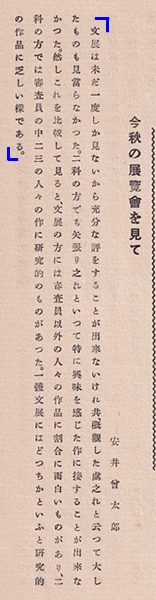 今秋の展覽會を見て
安井曾太郎
文展は未だ一度しか見ないから充分な評をすることが出來ないけれ共、概觀した處之れと云つて大し
たものも見當らなかつた。二科の方でも矢張り之れといつて特に興味を感じた作に接することが出來な
かつた。然しこれを比較して見ると、文展の方には審査員以外の人々の作品に割合に面白いものがあり、二
科の方では審査員の中二三の人々の作に研究的のものがあつた。一體文展にはどつちかといふと研究的
の作品に乏しい樣である。